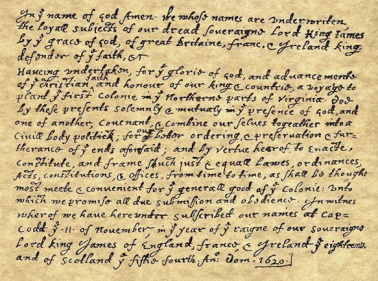 In yͤ name of god Amen. We whose names are vnderwriten,
the loyall subjects of our dread soveraigne Lord King James
by yͤ grace of god, of great Britaine, franc, & Ireland king,
defender of yͤ faith, &c
Haveing undertaken, for yͤ glorie of god, and advancemente
of yͤ christian faith and honour of our king & countrie, a voyage to
plant yͤ first colonie in yͤ Northerne parts of Virginia. doe
by these presents solemnly & mutualy in yͤ presence of god, and
one of another, covenant, & combine our selves togeather into a
Civill body politick; for our better ordering, & preservation & fur-
therance of yͤ ends aforesaid; and by vertue hearof to enacte,
constitute, and frame shuch just & equall Lawes, ordinances,
Acts, constitutions, & offices, from time to time, as shall be thought
most meete & convenient for yͤ generall good of yͤ Colonie: vnto
which we promise all due submission and obedience. In witnes
wherof we have hereunder subscribed our names at Cap-
Codd yͤ .11. of November, in yͤ year of yͤ raigne of our soveraigne
Lord king James of England, france & Ireland yͤ eighteene,
and of Scotland yͤ fiftie fourth. Anͦ: Dom. 1620.]